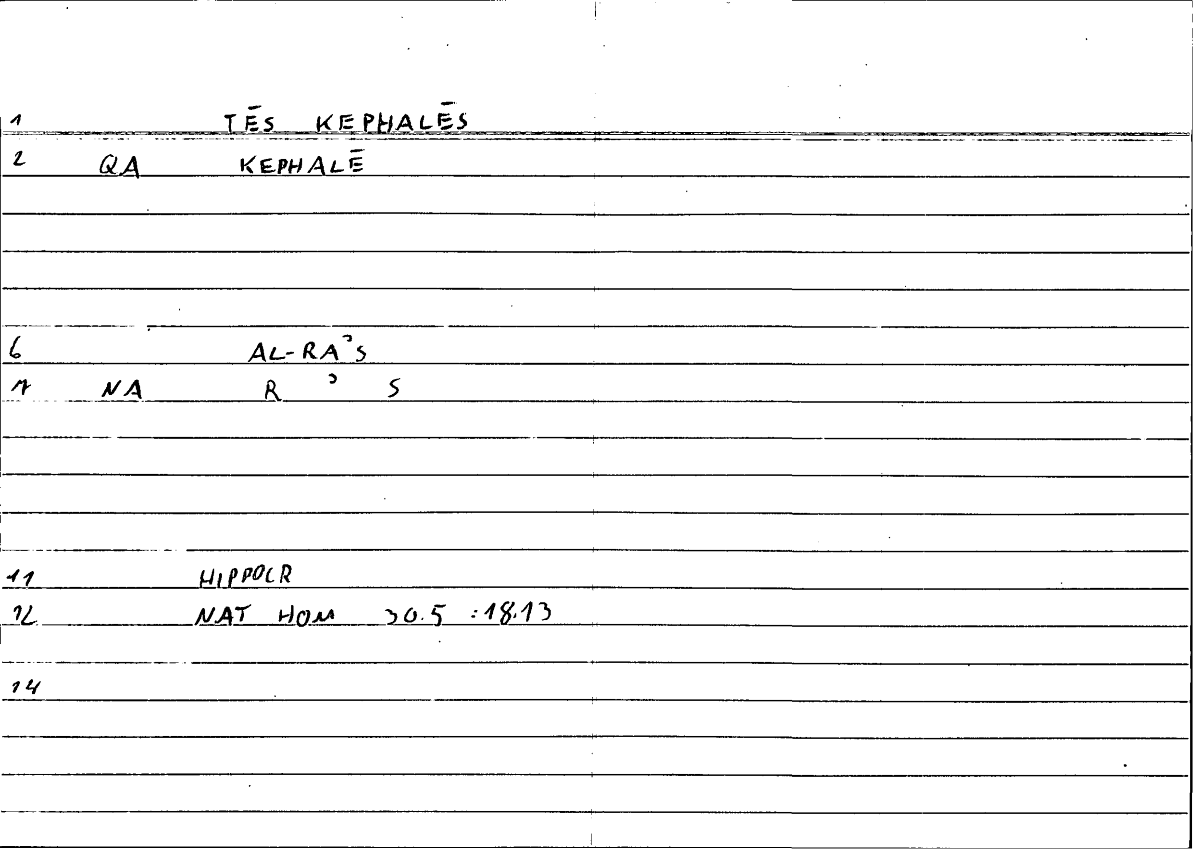 1 TĒS KEPHALĒS
2 QA KEPHALĒ
6 AL-RAʾS
7 NA R ʾ S
11 HIPPOCR
12 NAT HOM 30.5 :18.13
14